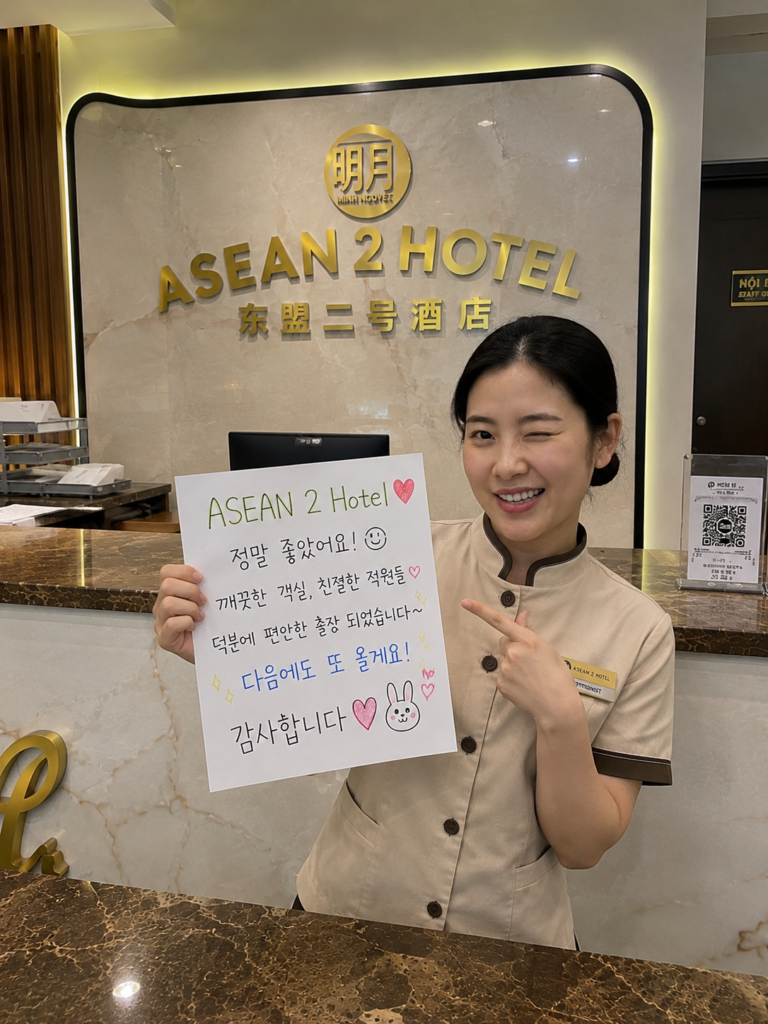 明月
MINH NGUYET
ASEAN 2 HOTEL
东盟二号酒店
NỘI
STAFF
ASEAN 2 Hotel
정말 좋았어요!
깨끗한 객실, 친절한 직원들
덕분에 편안한 출장 되었습니다~
다음에도 또 올게요!
감사합니다
ASEAN 2 HOTEL